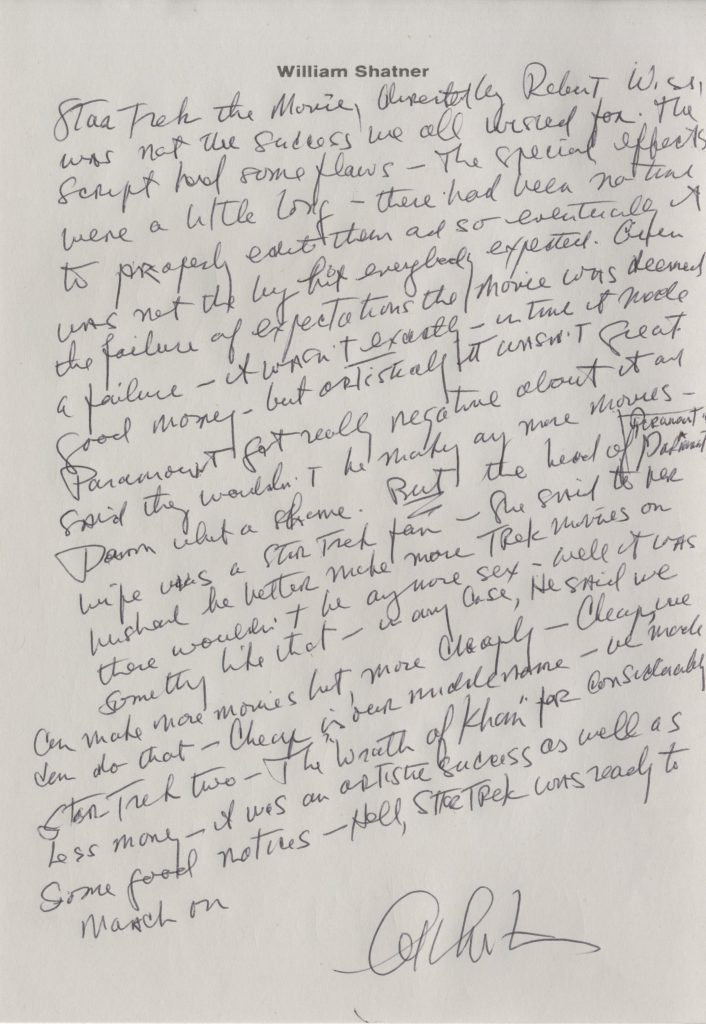 William Shatner
Star Trek the Movie, directed by Robert Wise,
was not the success we all wished for. The
script had some flaws – The special effects
were a little long – there had been no time
to properly edit them ad so eventually it
was not the big hit everybody expected. Given
the failure of expectations the movie was deemed
a failure – it wasn't exactly – in time it made
good money – but artistically it wasn't great
Paramount got really negative about it and
said they wouldn't be making any more movies –
Damn what a shame. But the head of Paramount's
wife was a Star Trek fan – She said to her
husband he better make more Trek movies or
there wouldn't be any more sex – well it was
something like that – in any case, He said we
can make more movies but, more cheaply – Cheap, we
can do that – Cheap is our middle name – we made
Star Trek two – The "Wrath of Khan" for considerably
less money – it was an artistic success as well as
Some good notices – Hell, Star Trek was ready to
March on